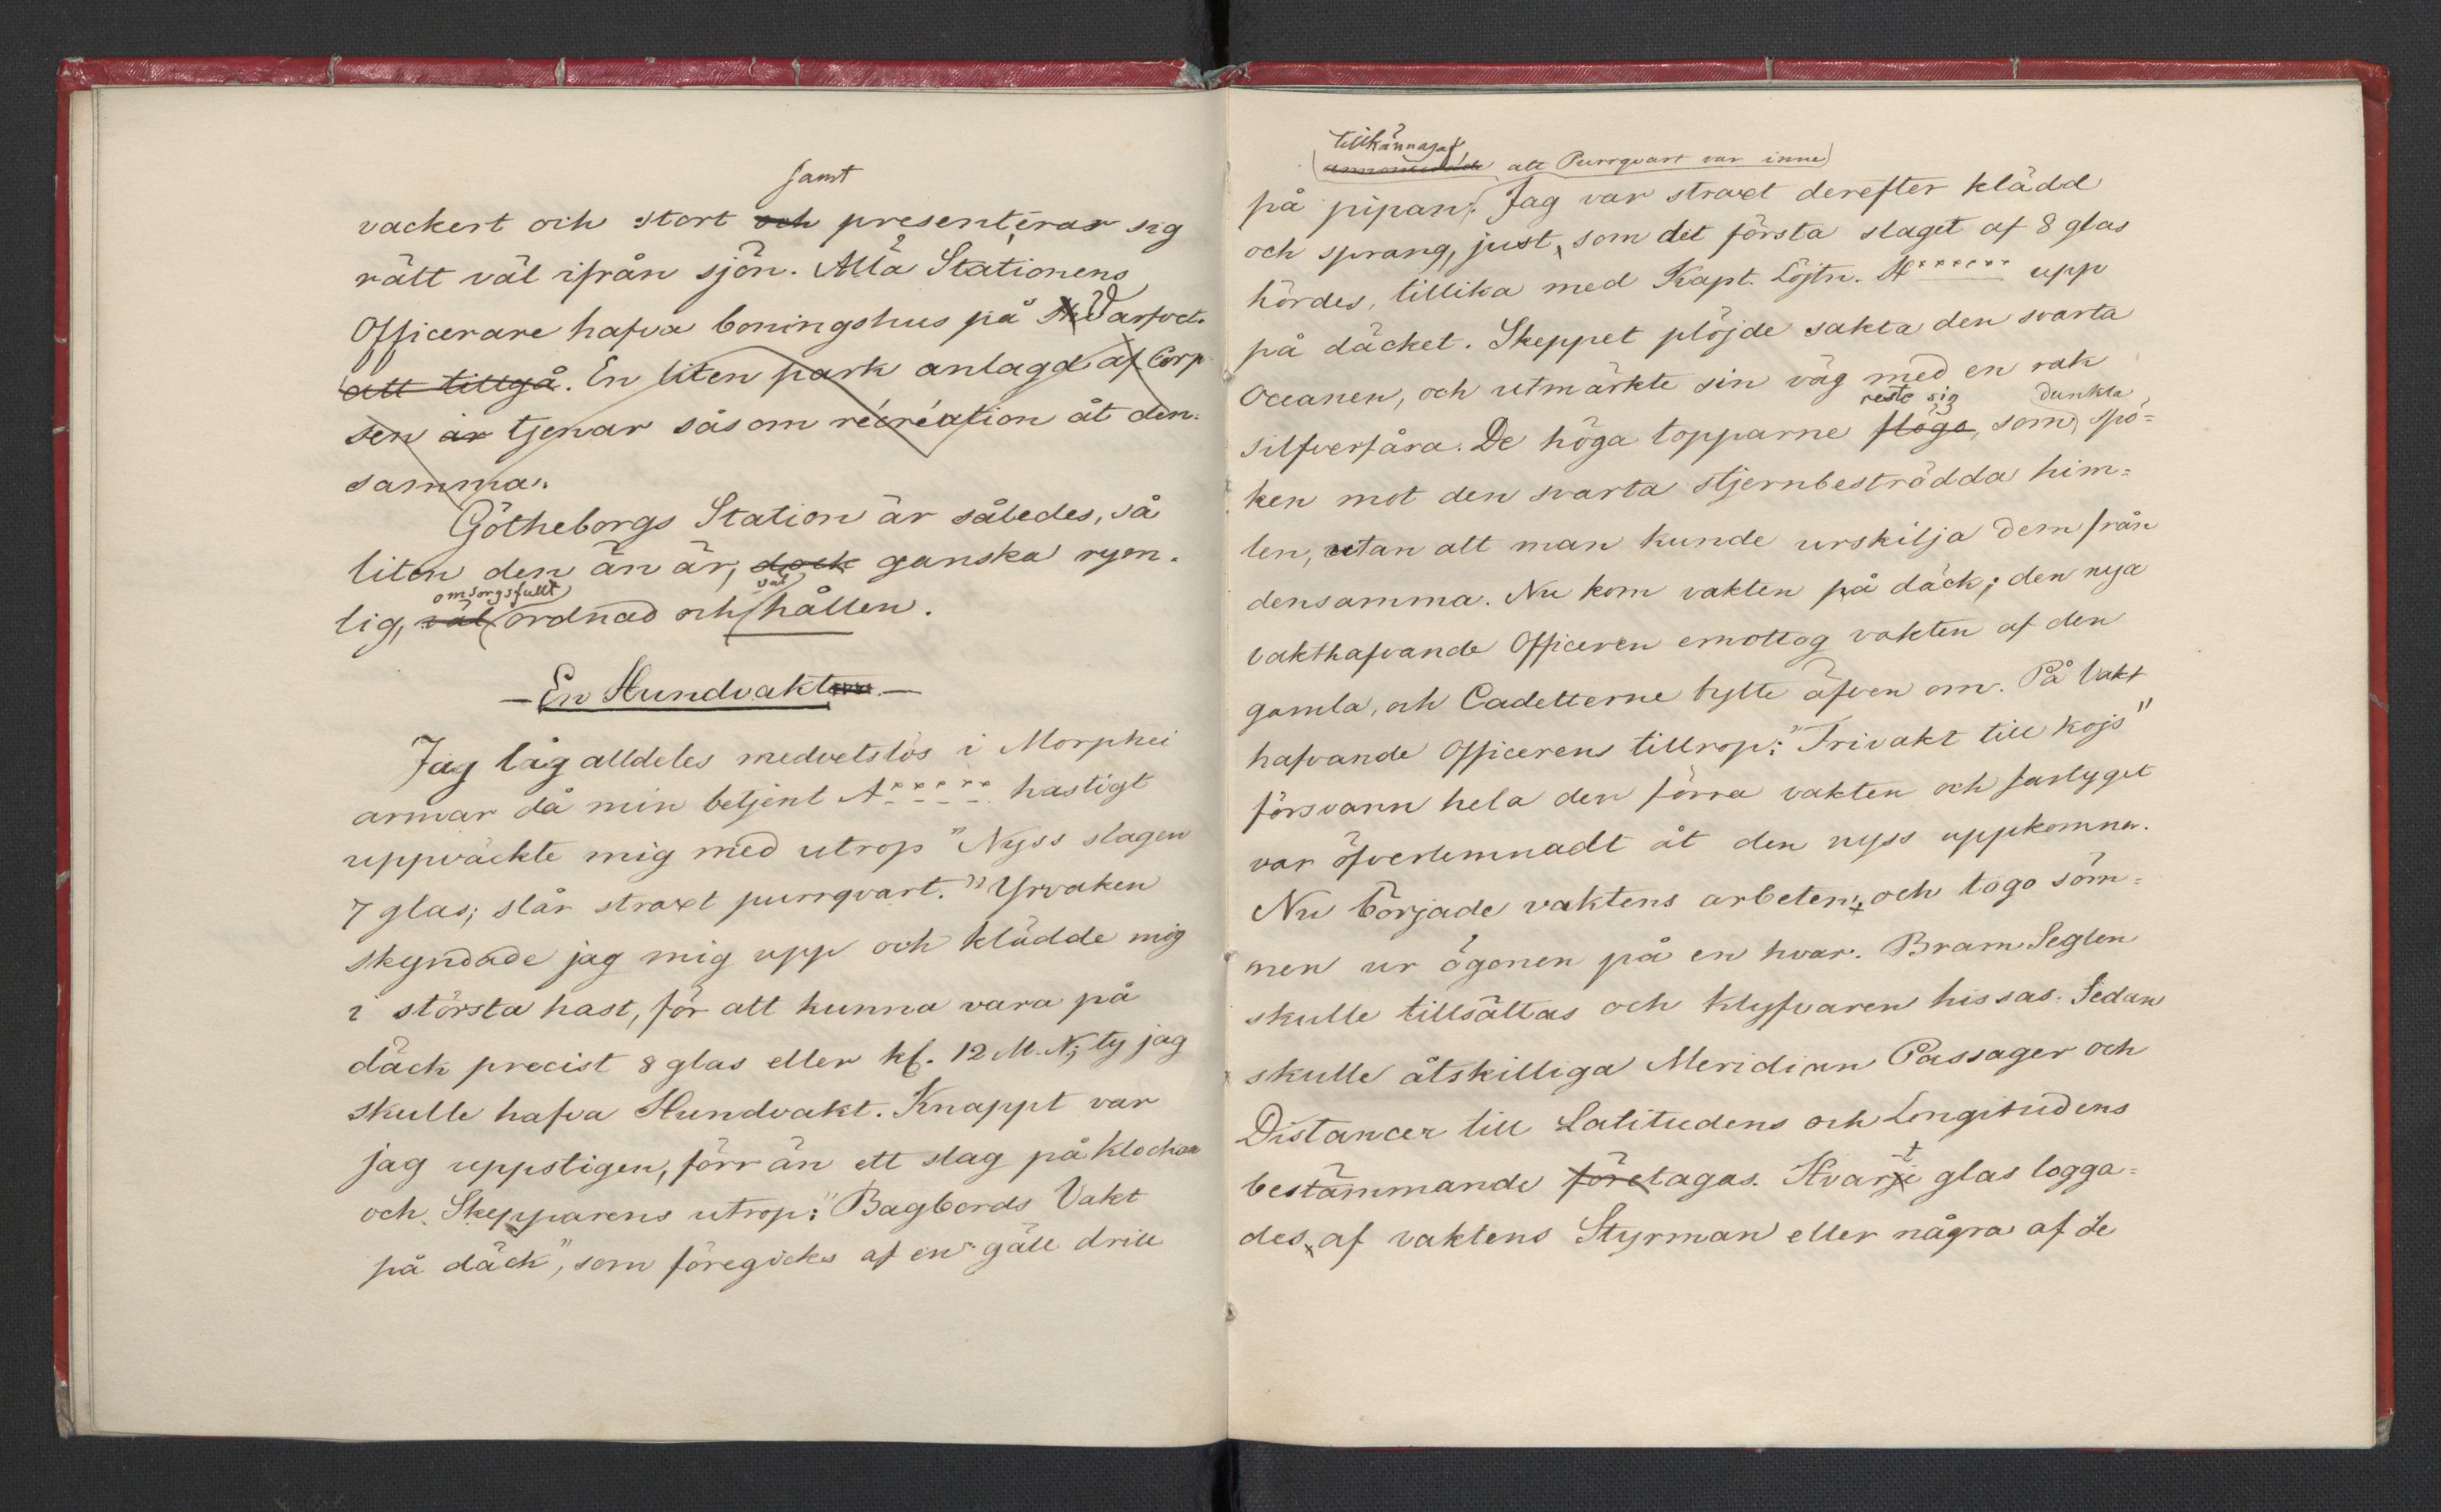 samt
vackert och stort och presenterar sig
rätt väl ifrån sjön. Alla Stationens
Officerare hafva boningshus på Varfvet.
att tillgå. En liten park anlagd af Corp
sen är tjenar såsom récréation åt den-
samma.
Götheborgs Station är således, så
liten den än är, dock ganska ryen-
omsorgsfullt väl
lig, väl ordnad och hållen.
— En Hundvakten. —
Jag låg alldeles medvetslös i Morphei
armar då min betjent A****** hastigt
uppväckte mig med utrop "Nyss slagen
7 glas; slår straxt purrqvart." Yrvaken
skyndade jag mig upp och klädde mig
i största hast, för att kunna vara på
däck precist 8 glas eller kl. 12 M.N; ty jag
skulle hafva Hundvakt. Knappt var
jag uppstigen, förr än ett slag på klockan
och Skepparens utrop: "Bagbords Vakt
på däck", som föregicks af en gäll drill
tillkännagaf
annonserade att Purrqvart var inne
på pipan. Jag var straxt derefter klädd
och sprang, just som det första slaget af 8 glas
hördes, tillika med Kapt. Löjtn. H****** upp
på däcket. Skeppet plöjde sakta den svarta
Oceanen, och utmärkte sin väg med en rak
reste sig dunkla
silfverfåra. De höga topparne flögo, som spö-
ken mot den svarta stjernbeströdda him-
len, utan att man kunde urskilja dem från
densamma. Nu kom vakten på däck; den nya
vakthafvande Officeren emottog vakten af den
gamla, och Cadetterne bytte äfven om. På Vakt
hafvande Officerens tillrop: "Frivakt till kojs"
försvann hela den förra vakten och fartyget
var öfverlemnadt åt den nyss uppkomna.
Nu började vaktens arbeten, och togo söm-
nen ur ögonen på en hvar. Bram Seglen
skulle tillsättas och klyfvaren hissas. Sedan
skulle åtskilliga Meridian Passager och
Distancer till Latitudens och Longitudens
t
bestämmande företagas. Hvarje glas logga-
des, af vaktens Styrman eller några af de